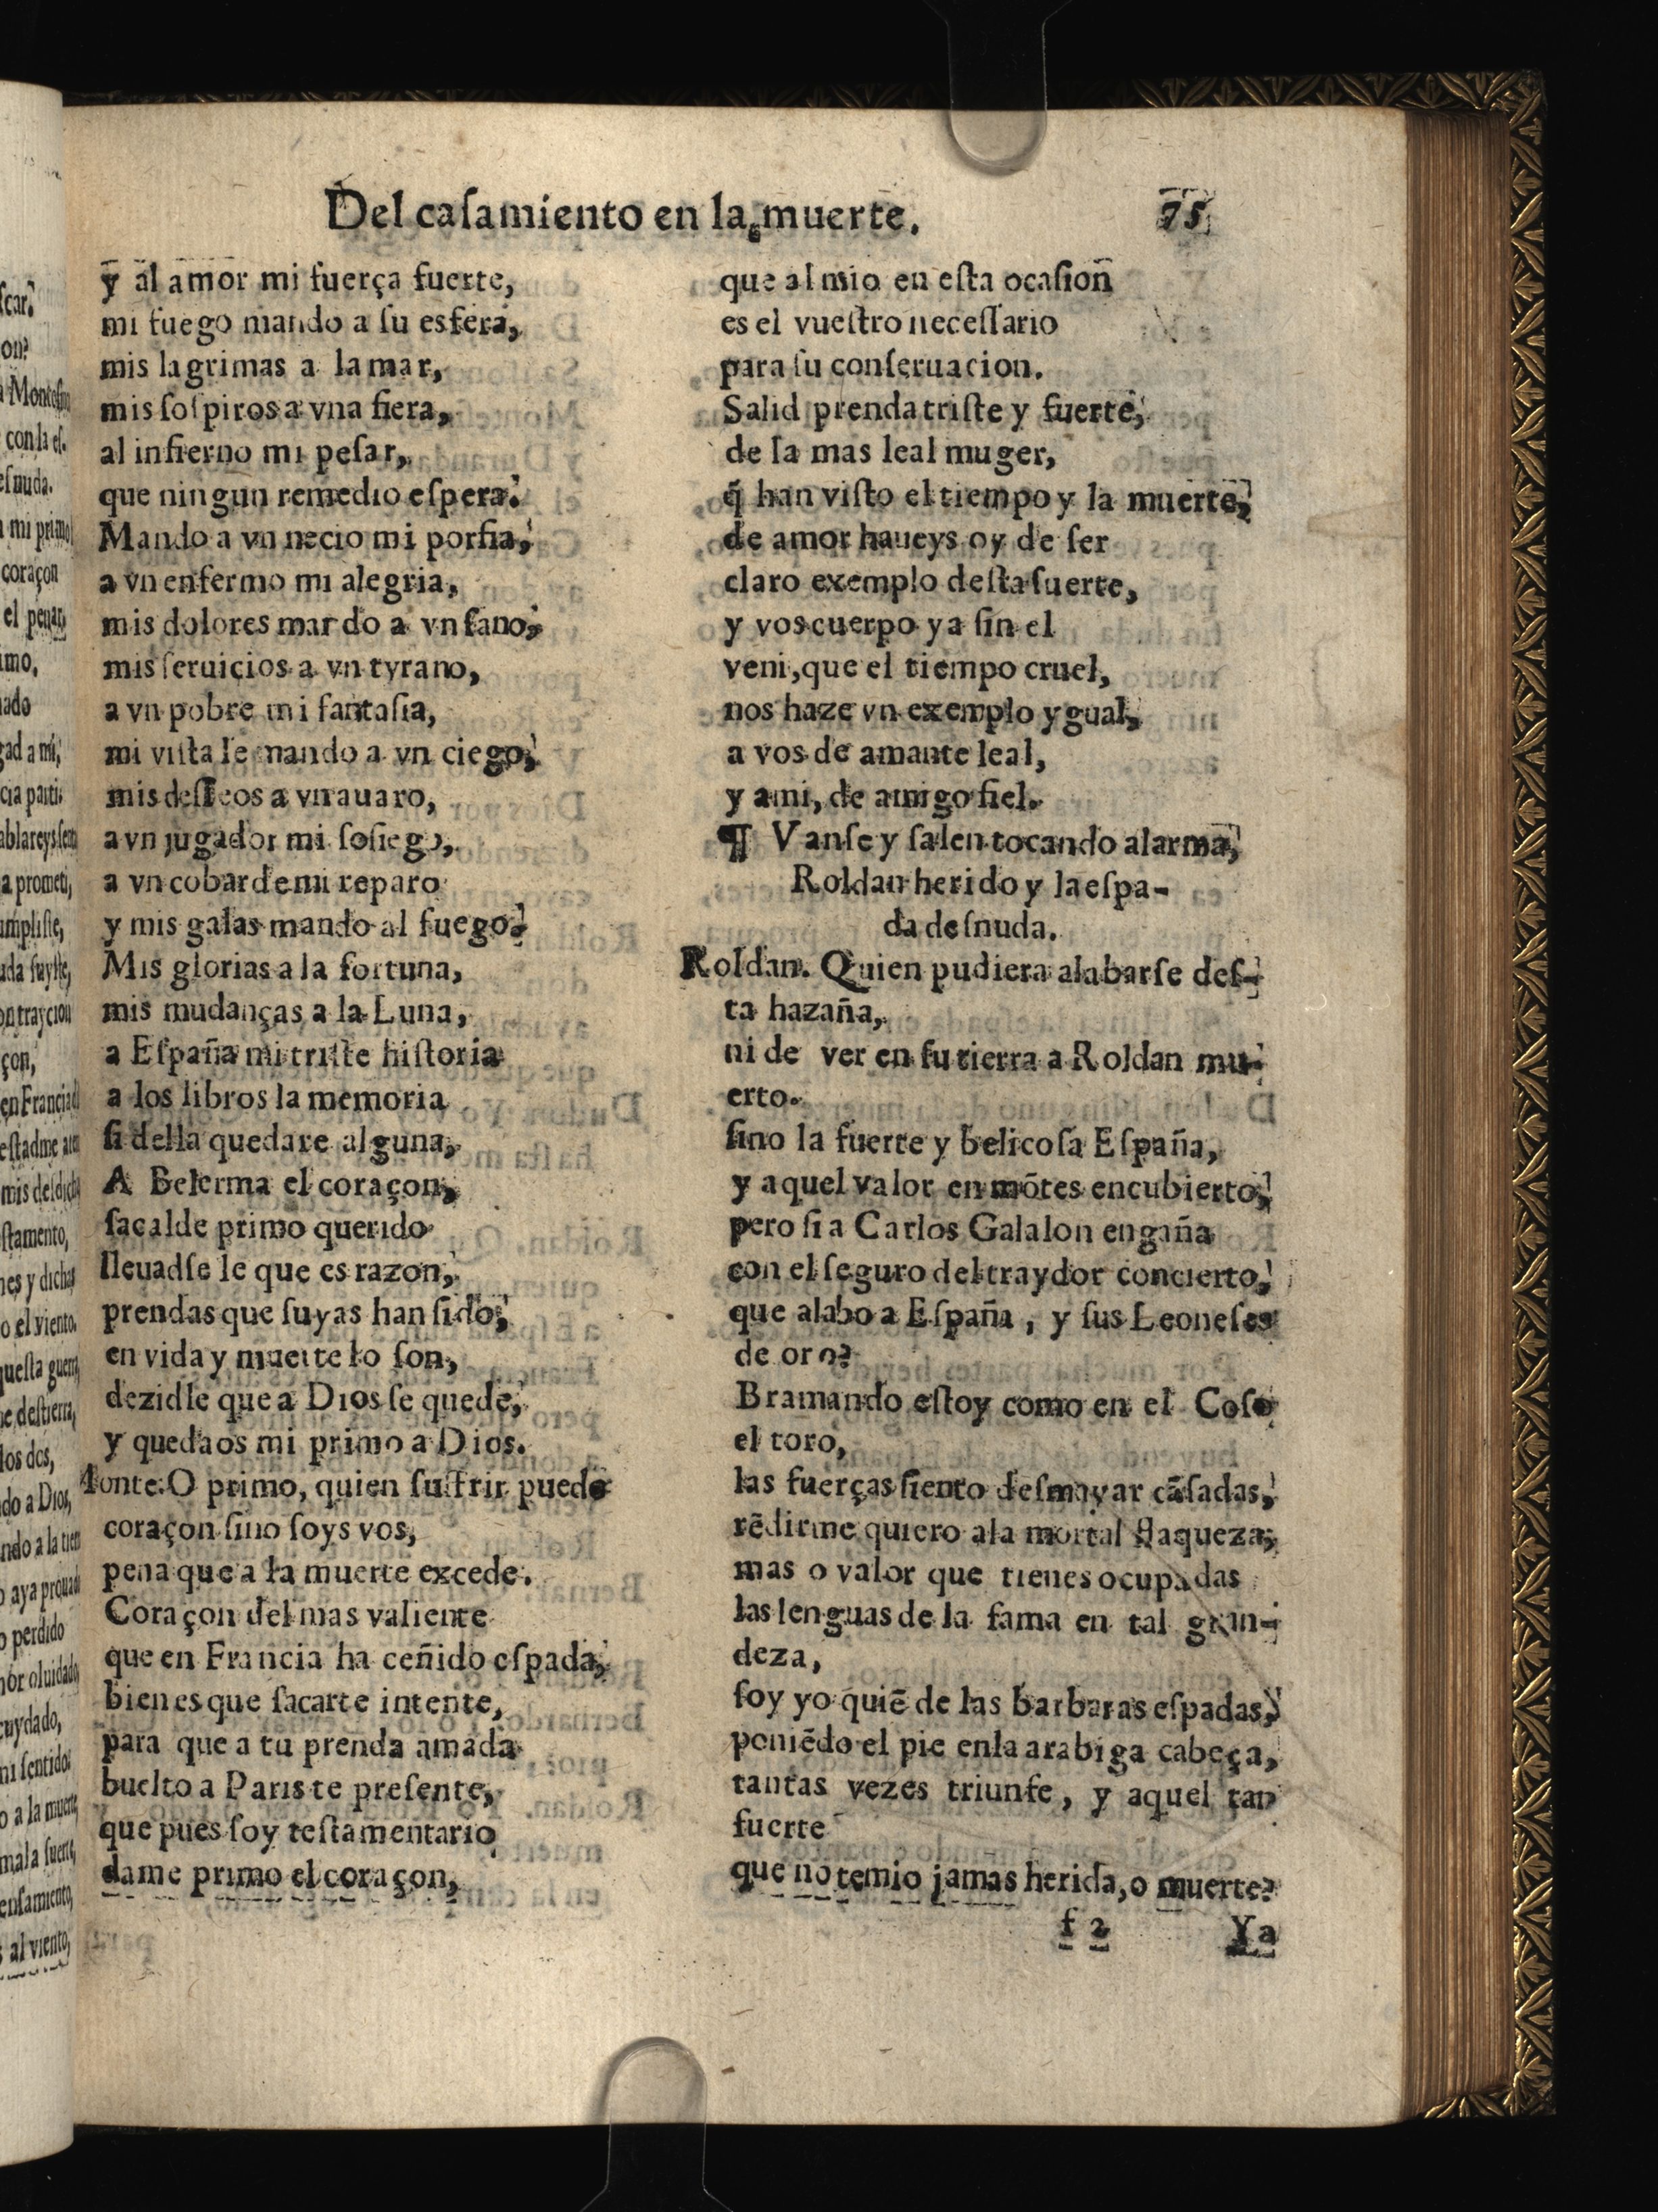 Del caſamiento en la muerte. 75
y al amor mi fuerça fuerte,
mi fuego mando a ſu esfera,
mis lagrimas a la mar,
mis ſoſpiros a vna fiera,
al infierno mi peſar,
que ningun remedio eſpera.
Mando a vn necio mi porfia,
a vn enfermo mi alegria,
mis dolores mando a vn ſano,
mis ſeruicios a vn tyrano,
a vn pobre mi fantaſia,
mi viſta le mando a vn ciego,
mis deſſeos a vn auaro,
a vn jugador mi ſoſiego,
a vn cobarde mi reparo
y mis galas mando al fuego.
Mis glorias a la fortuna,
mis mudanças a la Luna,
a Eſpaña mi triſte hiſtoria
a los libros la memoria
ſi della quedare alguna,
A Belerma el coraçon,
ſacalde primo querido
lleuadſe le que es razon,
prendas que ſuyas han ſido,
en vida y muerte lo ſon,
dezidle que a Dios ſe quede,
y quedaos mi primo a Dios.
Monte. O primo, quien ſuffrir puede
coraçon ſino ſoys vos,
pena que a la muerte excede.
Coraçon del mas valiente
que en Francia ha ceñido eſpada,
bien es que ſacarte intente,
para que a tu prenda amada
buelto a Paris te preſente,
que pues ſoy teſtamentario
dame primo el coraçon,
que al mio en eſta ocaſion
es el vueſtro neceſſario
para ſu conſeruacion.
Salid prenda triſte y fuerte,
de la mas leal muger,
q̃ han viſto el tiempo y la muerte,
de amor haueys oy de ſer
claro exemplo deſta ſuerte,
y vos cuerpo ya ſin el
veni, que el tiempo cruel,
nos haze vn exemplo ygual,
a vos de amante leal,
y a mi, de amigo fiel.
¶ Vanſe y ſalen tocando alarma,
Roldan herido y la eſpa-
da deſnuda.
Roldan. Quien pudiera alabarſe deſ-
ta hazaña,
ni de ver en ſu tierra a Roldan mu-
erto.
ſino la fuerte y belicoſa Eſpaña,
y aquel valor en mõtes encubierto,
pero ſi a Carlos Galalon engaña
con el ſeguro del traydor concierto,
que alabo a Eſpaña, y ſus Leoneſes
de oro?
Bramando eſtoy como en el Coſo
el toro,
las fuerças ſiento deſmayar cãſadas,
rẽdirme quiero a la mortal flaqueza,
mas o valor que tienes ocupadas
las lenguas de la fama en tal gran-
deza,
ſoy yo quiẽ de las barbaras eſpadas,
poniẽdo el pie en la arabiga cabeça,
tantas vezes triunfe, y aquel tan
fuerte
que no temio jamas herida, o muerte?
f 2 Ya